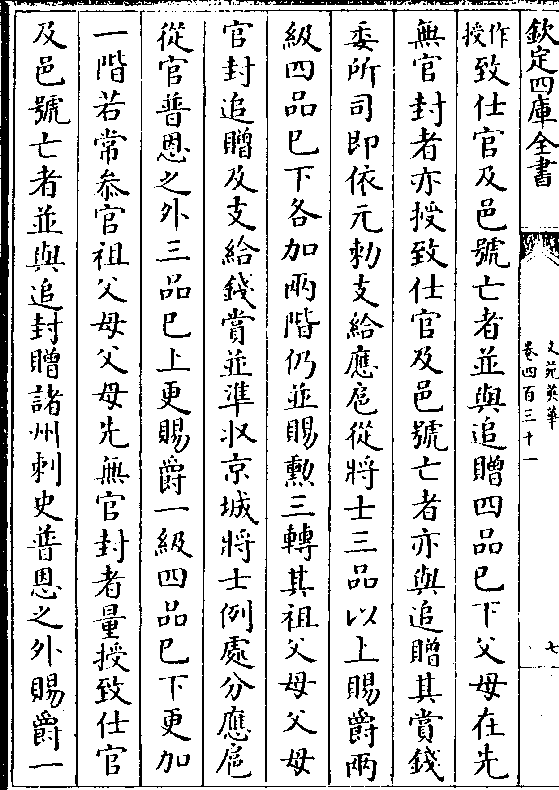 欽定四庫全書
文苑英華
卷四百三十一
七
授作致仕官及邑號亡者並與追贈四品已下父母在先
無官封者亦授致仕官及邑號亡者亦與追贈其賞錢
委所司即依元勑支給應扈從將士三品以上賜爵兩
級四品已下各加兩階仍並賜勲三轉其祖父母父母
官封追贈及支給錢賞並準收京城將士例處分應扈
從官普恩之外三品已上更賜爵一級四品已下更加
一階若常叅官祖父母父母先無官封者量授致仕官
及邑號亡者並與追封贈諸州刺史普恩之外賜爵一